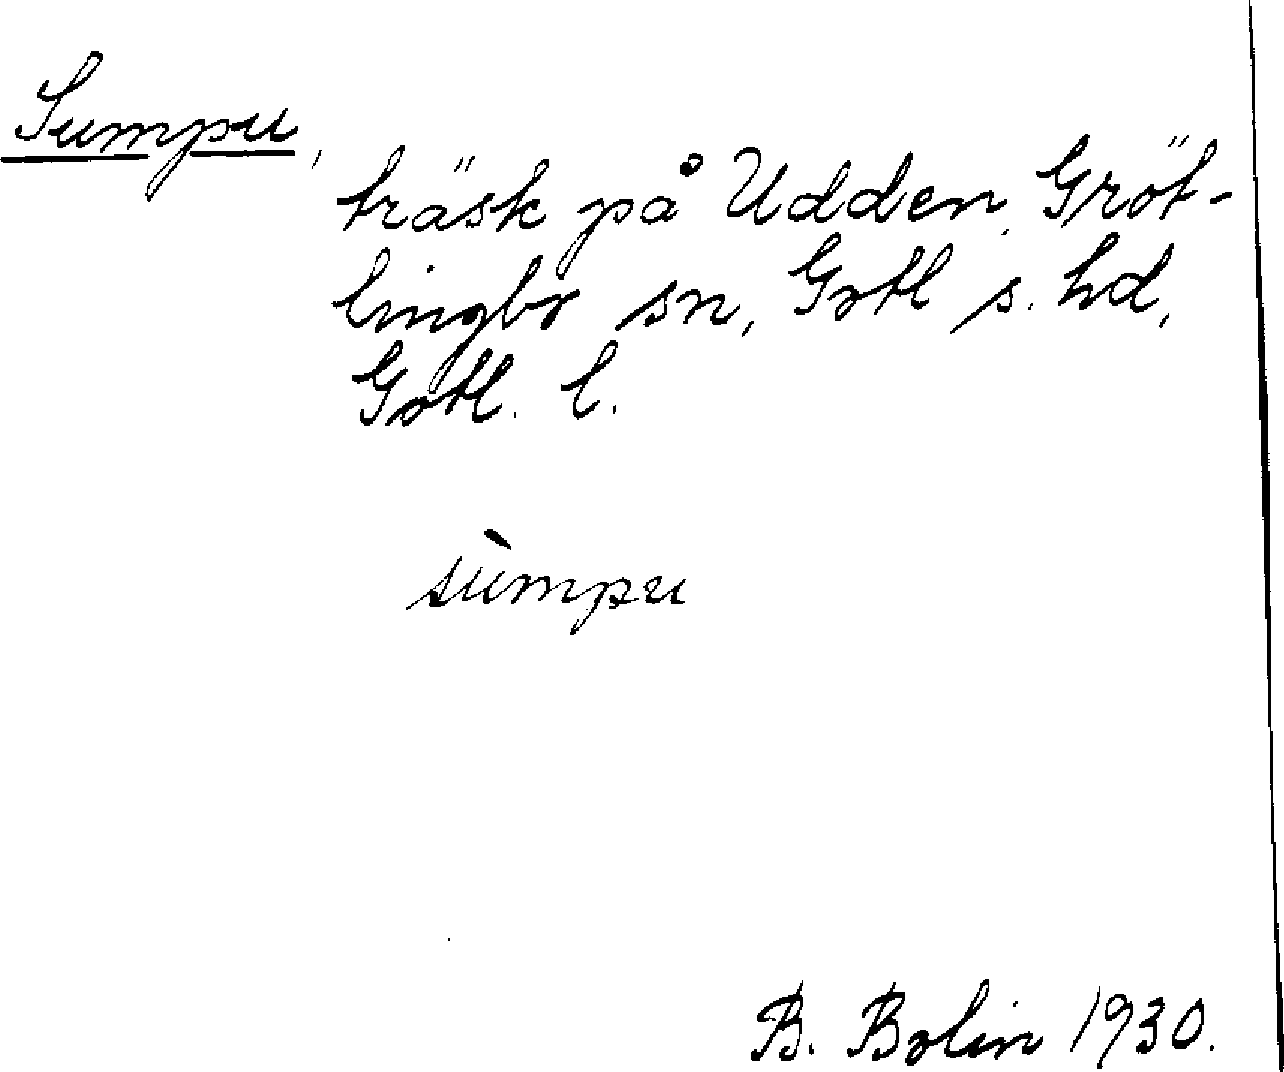 Sumpu,
träsk på Udden, Gröt-
lingbo sn, Gotl s. hd,
Gotl. l.
sùmpu
B. Bolin 1930.